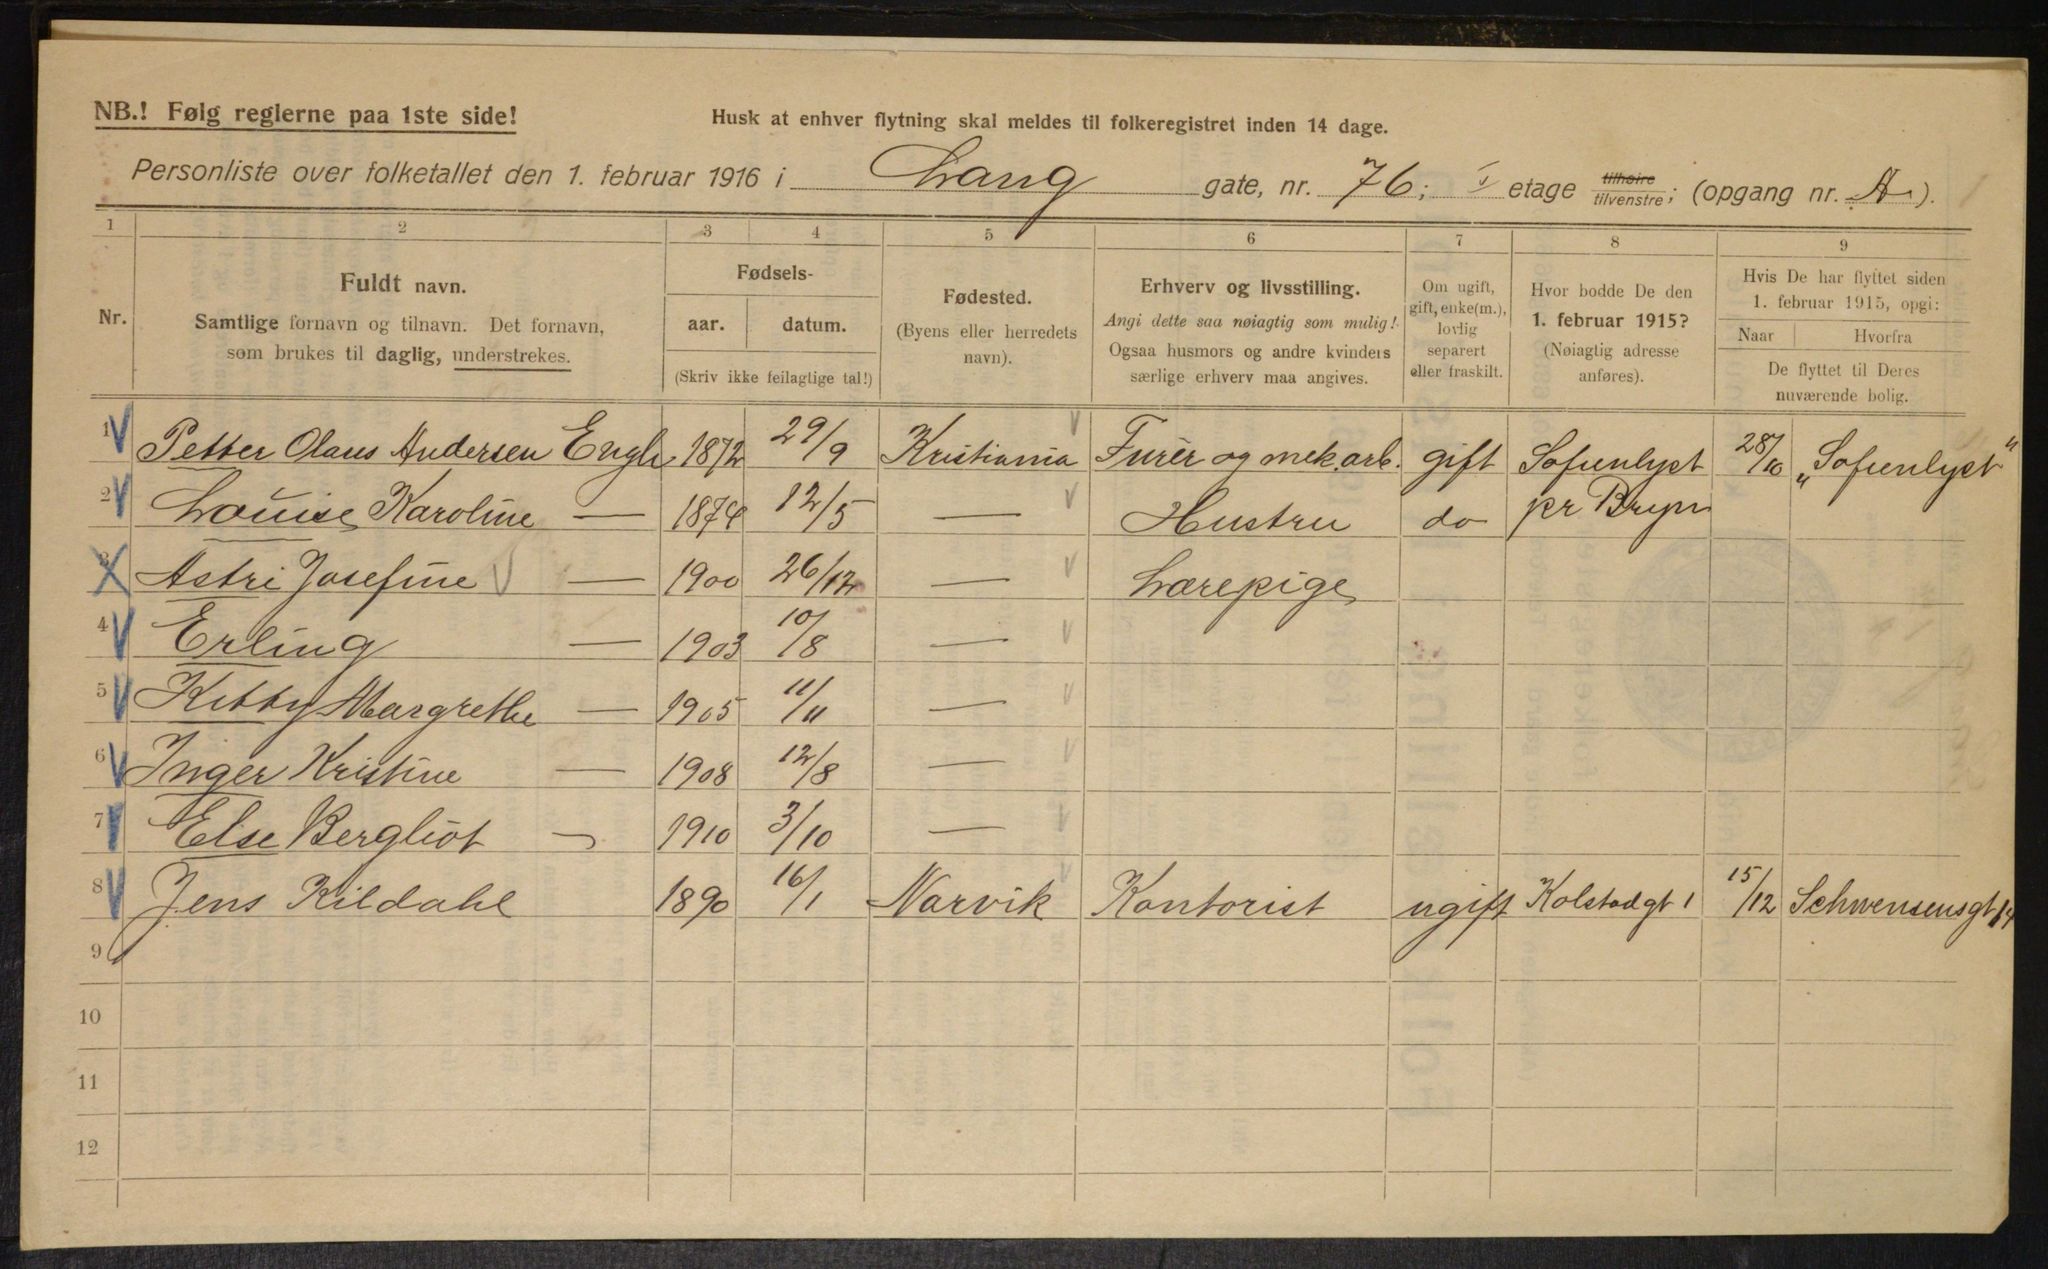 NB.! Følg reglerne paa 1ste side!
Husk at enhver flytning skal meldes til folkeregistret inden 14 dage.
Personliste over folketallet den 1. februar 1916 i Lang gate, nr. 76; I etage tilhøire tilvenstre; (opgang nr. A).
1 2 3 4 5 6 7 8 9
Nr.
Fuldt navn.
Samtlige fornavn og tilnavn. Det fornavn,
som brukes til daglig, understrekes.
Fødsels-
aar. datum.
(Skriv ikke feilagtige tal!)
Fødested.
(Byens eller herredets
navn).
Erhverv og livsstilling.
Angi dette saa nøiagtig som mulig!
Ogsaa husmors og andre kvinders
særlige erhverv maa angives.
Om ugift,
gift, enke(m.),
lovlig
separert
eller fraskilt.
Hvor bodde De den
1. februar 1915?
(Nøiagtig adresse
anføres).
Hvis De har flyttet siden
1. februar 1915, opgi:
Naar Hvorfra
De flyttet til Deres
nuværende bolig.
1 Petter Olaus Andersen Engh 1872 29/9 Kristiania Furèr og mek. arb. gift Sofienlyst 28/10 "Sofienlyst"
2 Louise Karoline — 1874 12/5 — Hustru do pr Bryn
3 Astri Josefine — 1900 26/12 — Lærepige
4 Erling — 1903 10/8 —
5 Kitty Margrethe — 1905 11/11 —
6 Inger Kristine — 1908 12/8 —
7 Else Bergliot — 1910 3/10 —
8 Jens Kildahl 1890 16/1 Narvik Kontorist ugift Kolstadgt 1 15/12 Schwensensgt 14
9
10
11
12